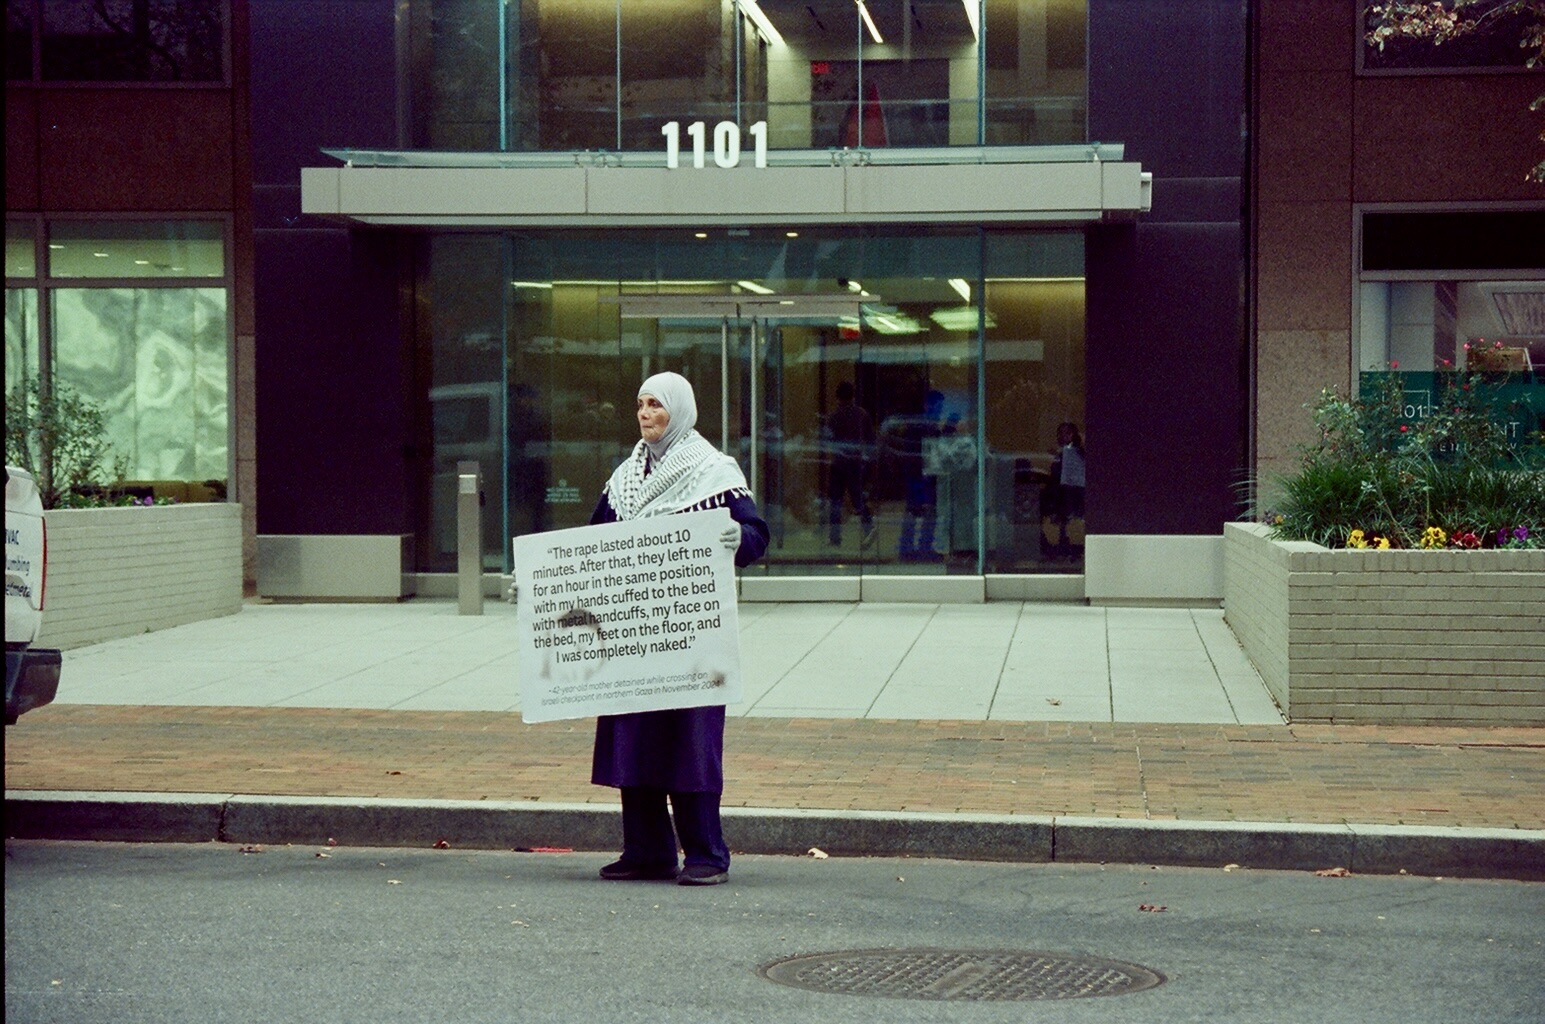 1101
“The rape lasted about 10
minutes. After that, they left me
for an hour in the same position,
with my hands cuffed to the bed
with metal handcuffs, my face on
the bed, my feet on the floor, and
I was completely naked.”
- 42-year-old mother detained while crossing an
Israeli checkpoint in northern Gaza in November 2024